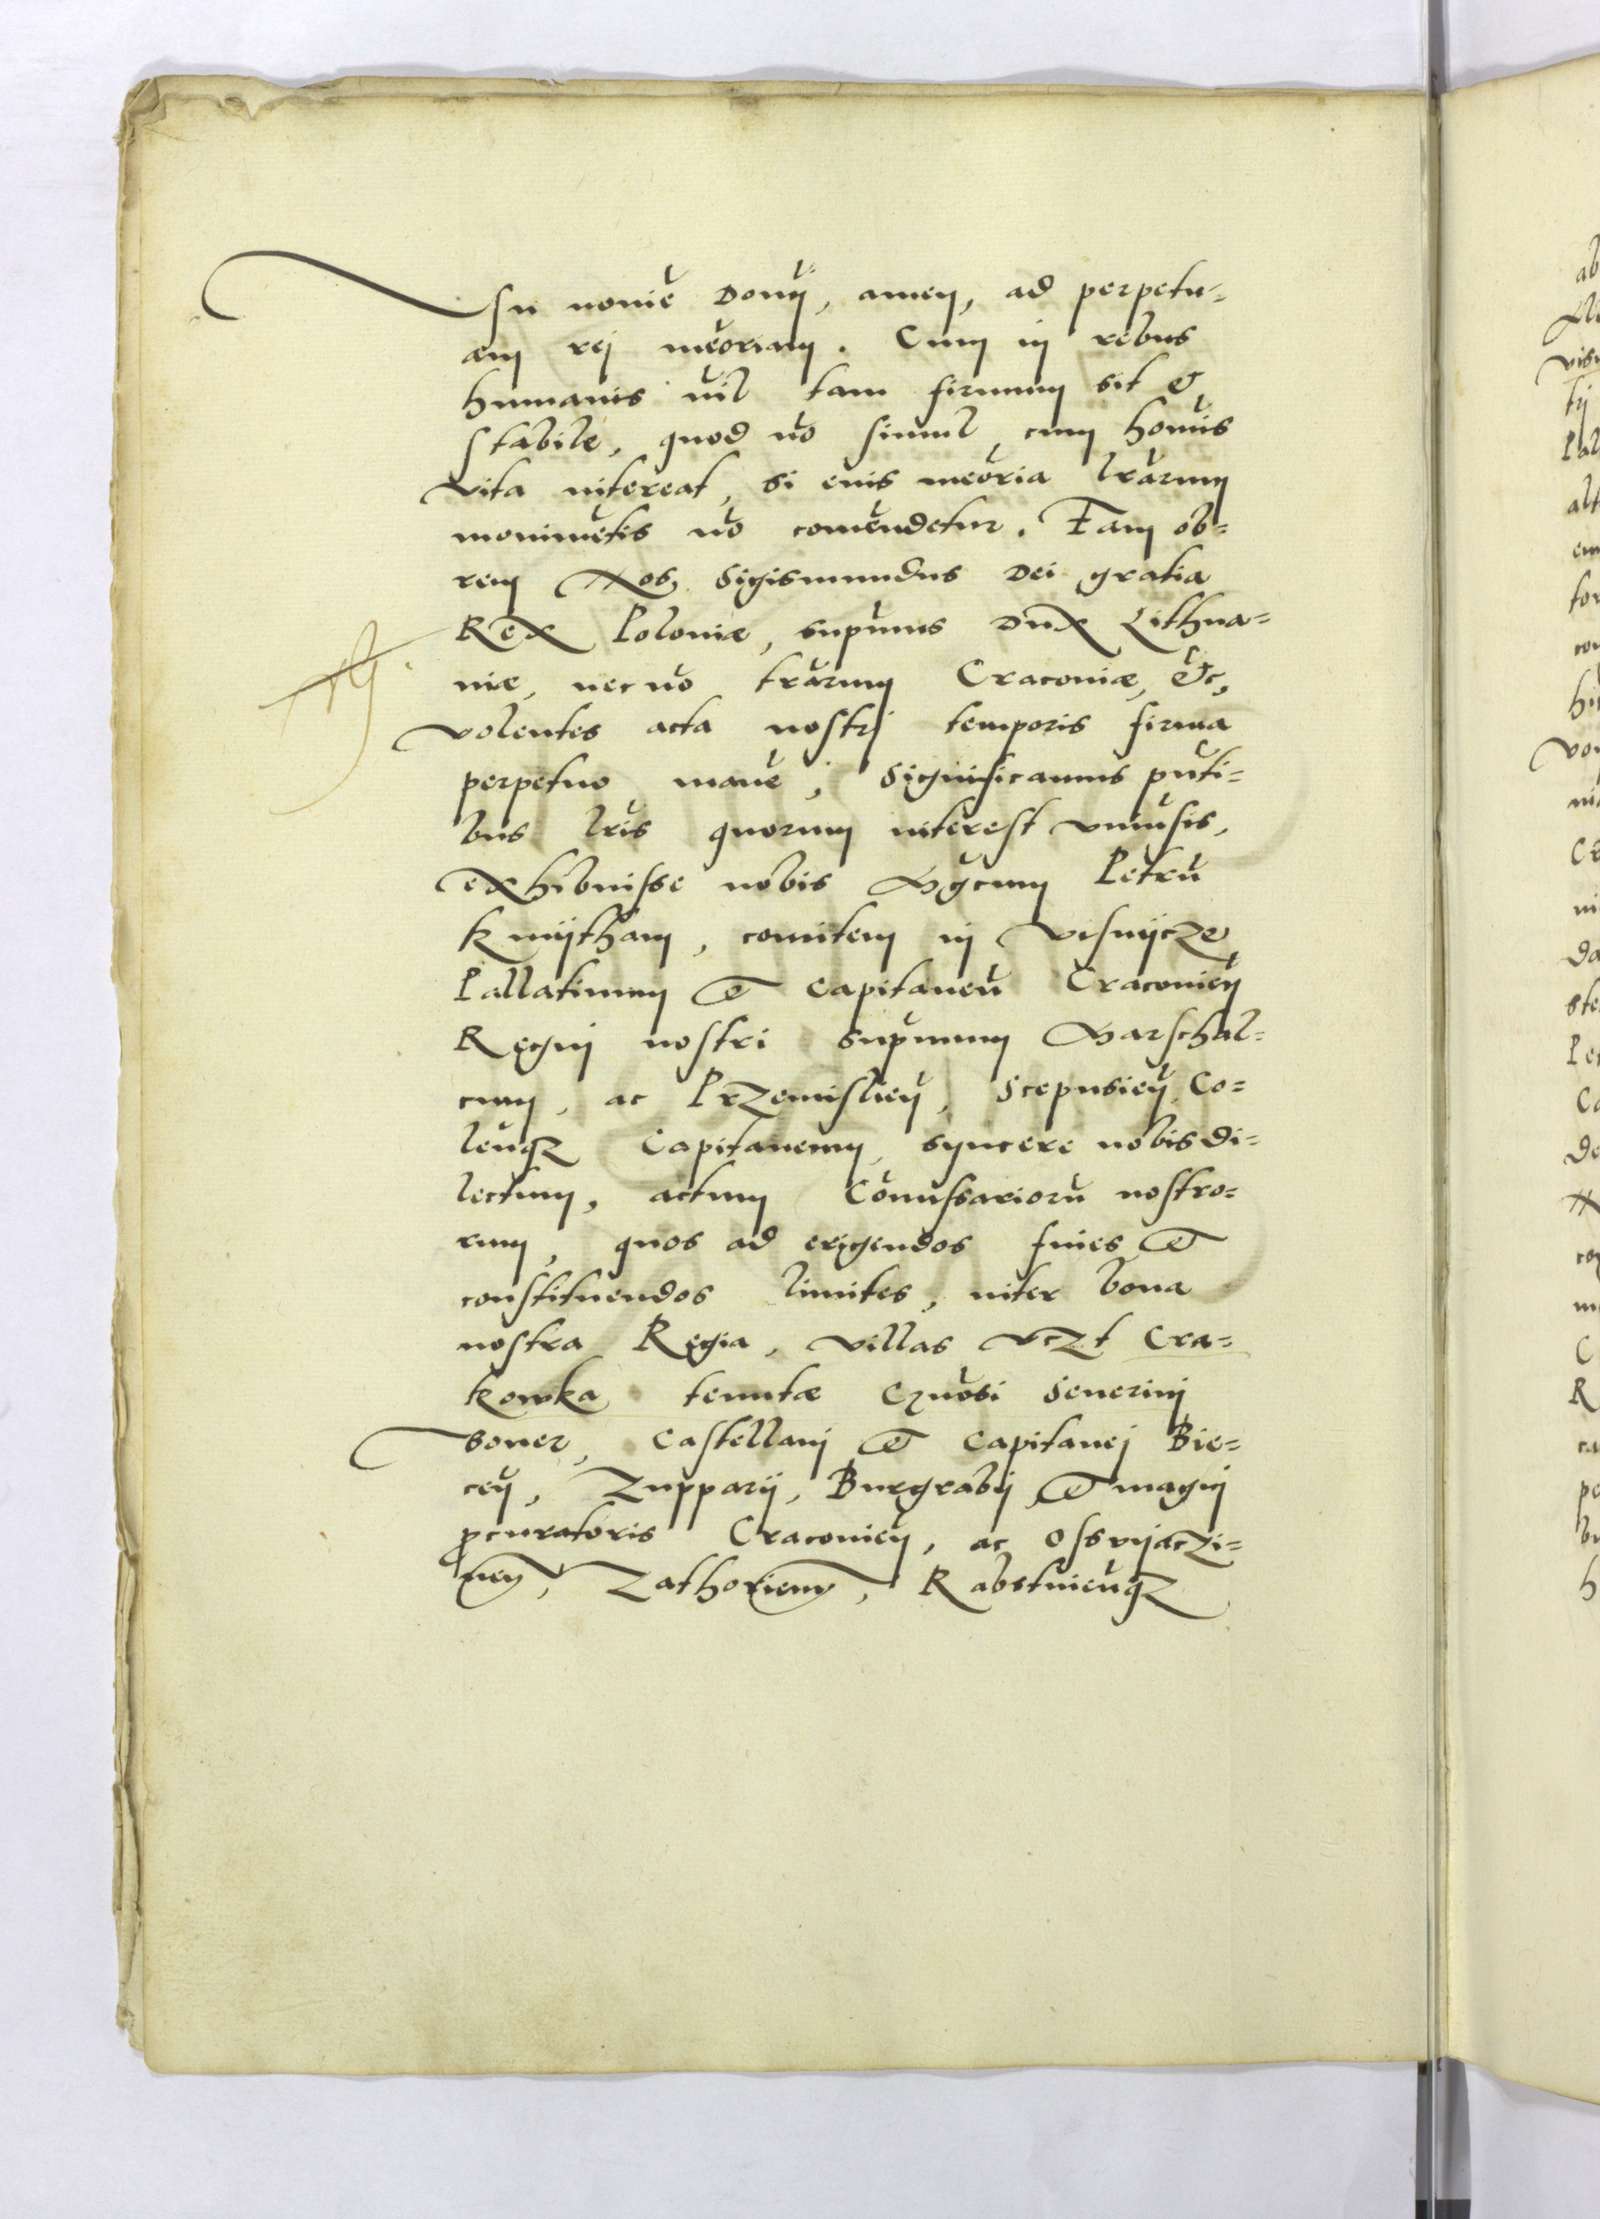 In nomīe Domī, amen, ad perpetu=
am rej memoriam. Cum in rebus
humanis nil tam firmum sit &
stabile, quod nō simul cum homīs
vita intereat, si eius memōria lrārum
monimētis nō comēndetur. Eam ob=
rem Nos Sigismundus Dei gratia
Rex Poloniæ, suprmus Dux Lithua=
niæ, necnō trārum Cracoviæ, &c,
volentes acta nostrj temporis firma
perpetuo manē, Significamus pnti=
bus lris quorum interest vniūsis,
exhibuisse nobis Mgcum Petrū
Kmijtham, comitem in Visnijcze
Pallatinum et Capitaneū Cracovien
Regnj nostri suprmum Marschal=
cum, ac Przemislien, Scepusien, Co=
lenqz Capitaneum, syncere nobis di=
lectum, actum Cōmissariorū nostro=
rum, quos ad erigendos fines et
constituendos limites, inter bona
nostra Regia, villas vczt Cra=
kowka tenutæ Gnosi Seuerinj
boner, Castellanj et Capitanej Bie=
cen, Zupparij, Burgrabij et magnj
pcuratoris Cracovien, ac Osswijaczi=
men, Zathorien, Rabstinenqz